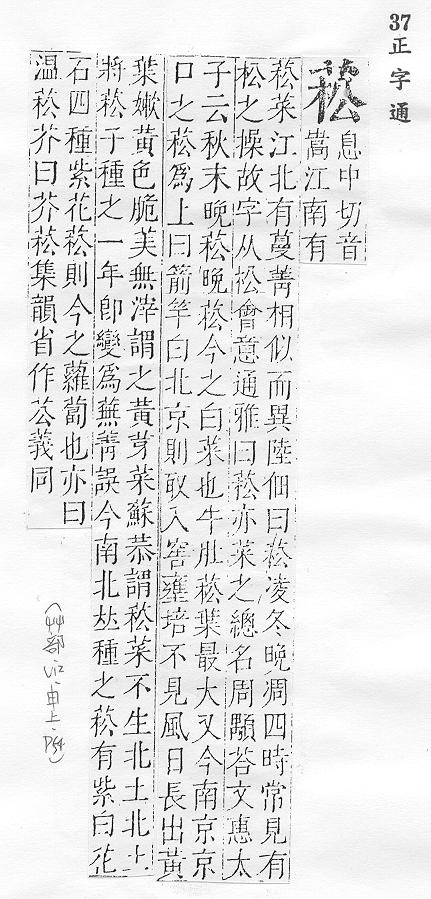 37正字通
菘
息中切音
嵩江南有
菘菜江北有蔓菁相似而異陸佃曰菘凌冬晚凋四時常見有
松之操故字从松會意通雅曰菘亦菜之總名周顒荅文惠太
子云秋末晚菘晚菘今之白菜也牛肚菘葉最大又今南京京
口之菘為上曰箭竿白北京則取入窖壅培不見風日長出黃
葉嫩黃色脆美無滓謂之黃芽菜蘇恭謂菘菜不生北土北土
將菘子種之一年卽變為蕪菁誤今南北𠀤種之菘有紫白花
石四種紫花菘則今之蘿蔔也亦曰
温菘芥曰芥菘集韻省作苰義同
(艸部 申上 P54)